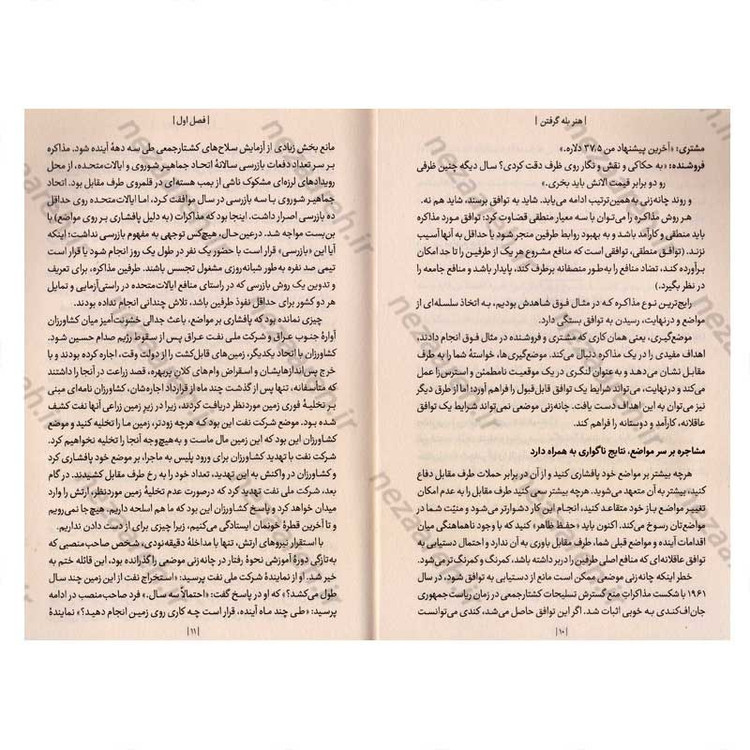 | هنر بله گرفتن |
مشتری: «آخرین پیشنهاد من ۳۷.۵ دلاره.»
فروشنده: «به حکاکی و نقش و نگار روی ظرف دقت کردی؟ سال دیگه چنین ظرفی
رو دو برابر قیمت الانش باید بخری.»
و روند چانه‌زنی به این ترتیب ادامه می‌یابد. شاید به توافق برسند، شاید هم نه.
هر روش مذاکره را می‌توان با سه معیار منطقی قضاوت کرد: توافق مورد مذاکره
باید منطقی و کارآمد باشد و به بهبود روابط طرفین منجر شود یا حداقل به آنها آسیب
نزند. (توافق منطقی، توافقی است که منافع مشروع هر یک از طرفین را تا حد امکان
برآورده کند، تضاد منافع را به‌طور منصفانه برطرف کند، پایدار باشد و منافع جامعه را
در نظر بگیرد.)
رایج‌ترین نوع مذاکره که در مثال فوق شاهدش بودیم، به اتخاذ سلسله‌ای از
مواضع و درنهایت، رسیدن به توافق بستگی دارد.
موضع‌گیری، یعنی همان کاری که مشتری و فروشنده در مثال فوق انجام دادند،
اهداف مفیدی را در یک مذاکره دنبال می‌کند. موضع‌گیری‌ها، خواستهٔ شما را به طرف
مقابل نشان می‌دهد و به‌عنوان لنگری در یک موقعیت نامطمئن و استرس‌زا عمل
می‌کند و درنهایت، می‌تواند شرایط یک توافق قابل‌قبول را فراهم آورد؛ اما از طرق دیگر
نیز می‌توان به این اهداف دست یافت. چانه‌زنی موضعی نمی‌تواند شرایط یک توافق
عاقلانه، کارآمد و دوستانه را فراهم کند.
مشاجره بر سر مواضع، نتایج ناگواری به همراه دارد
هرچه بیشتر بر مواضع خود پافشاری کنید و از آن در برابر حملات طرف مقابل دفاع
کنید، بیشتر به آن متعهد می‌شوید. هرچه بیشتر سعی کنید طرف مقابل را به عدم امکان
تغییر مواضع باز خود متقاعد کنید، انجام این کار دشوارتر می‌شود و منیّت شما در
مواضع‌تان رسوخ می‌کند. اکنون باید «حفظ ظاهر» کنید که با وجود ناهماهنگی میان
اقدامات آینده و مواضع قبلی شما، طرف مقابل باوری به آن ندارد و احتمال دستیابی به
توافق عاقلانه‌ای که منافع اصلی طرفین را دربر داشته باشد، کمرنگ و کمرنگ‌تر می‌شود.
خطر اینکه چانه‌زنی موضعی ممکن است مانع از دستیابی به توافق شود، در سال
۱۹۶۱ با شکست مذاکرات منع گسترش تسلیحات کشتارجمعی در زمان ریاست جمهوری
جان‌اف‌کندی به خوبی اثبات شد. اگر این توافق حاصل می‌شد، کندی می‌توانست
| ۱۰ |
| فصل اول |
مانع بخش زیادی از آزمایش سلاح‌های کشتارجمعی طی سه دههٔ آینده شود. مذاکره
بر سر تعداد دفعات بازرسی سالانهٔ اتحاد جماهیر شوروی و ایالات‌متحده، از محل
رویدادهای لرزه‌ای مشکوک ناشی از بمب هسته‌ای در قلمروی طرف مقابل بود. اتحاد
جماهیر شوروی با سه بازرسی در سال موافقت کرد، اما ایالات‌متحده روی حداقل
ده بازرسی اصرار داشت. اینجا بود که مذاکرات (به دلیل پافشاری بر روی مواضع) با
بن‌بست مواجه شد. درعین‌حال، هیچ‌کس توجهی به مفهوم بازرسی نداشت؛ اینکه
آیا این «بازرسی» قرار است با حضور یک نفر در طول یک روز انجام شود یا قرار است
تیمی صد نفره به‌طور شبانه‌روزی مشغول تجسس باشند. طرفین مذاکره، برای تعریف
و تدوین یک روش بازرسی که در راستای منافع ایالات‌متحده در راستی‌آزمایی و تمایل
هر دو کشور برای حداقل نفوذ طرفین باشد، تلاش چندانی انجام نداده بودند.
چیزی نمانده بود که پافشاری بر مواضع، باعث جدالی خشونت‌آمیز میان کشاورزان
آوارهٔ جنوب عراق و شرکت ملی نفت عراق پس از سقوط رژیم صدام حسین شود.
کشاورزان با اتحاد یکدیگر، زمین‌های قابل‌کشت را از دولت وقت، اجاره کرده بودند و با
خرج پس‌اندازهایشان و اقراض وام‌های کلان پربهره، قصد زراعت در آنجا را داشتند
که متأسفانه، تنها پس از گذشت چند ماه از قرارداد اجاره‌شان، کشاورزان نامه‌ای مبنی
بر تخلیهٔ فوری زمین موردنظر دریافت کردند، زیرا در زیر زمین زراعی آنها نفت کشف
شده بود. موضع شرکت نفت این بود که: هرچه زودتر، زمین ما را تخلیه کنید و موضع
کشاورزان این بود که این زمین مال ماست و به‌هیچ‌وجه آنجا را تخلیه نخواهیم کرد.
شرکت نفت با تهدید کشاورزان برای ورود پلیس به ماجرا، بر موضع خود پافشاری کرد
و کشاورزان در واکنش به این تهدید، تعداد خود را به رخ طرف مقابل کشیدند. در گام
بعد، شرکت ملی نفت تهدید کرد که درصورت عدم تخلیهٔ زمین موردنظر، ارتش را وارد
میدان خواهد کرد و پاسخ کشاورزان این بود که ما هم اسلحه داریم. هیچ‌جا نمی‌رویم
و تا آخرین قطرهٔ خونمان ایستادگی می‌کنیم، زیرا چیزی برای از دست دادن نداریم.
با استقرار نیروهای ارتش، تنها با مداخلهٔ دقیقه‌نودی، شخص صاحب‌منصبی که
به‌تازگی دورهٔ آموزشی نحوهٔ رفتار در چانه‌زنی موضعی را گذرانده بود، این قائله ختم به
خیر شد. او از نمایندهٔ شرکت ملی نفت پرسید: «استخراج نفت از این زمین چند سال
طول می‌کشد؟» که او در پاسخ گفت: «احتمالاً سه سال.». فرد صاحب‌منصب در ادامه
پرسید: «طی چند ماه آینده، قرار است چه کاری روی زمین انجام دهید؟» نمایندهٔ
| ۱۱ |